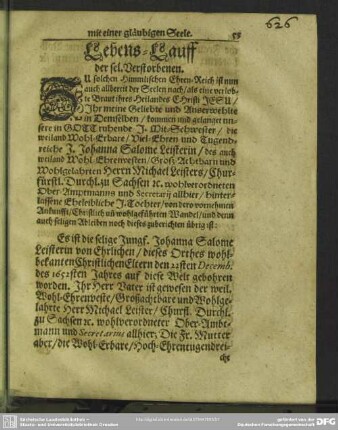 626
mit einer gläubigen Seele. 53
Lebens-Lauff
der sel. Verstorbenen.
ZU solchen Himmlischen Ehren-Reich ist nun
auch allbereit der Seelen nach/ als eine verlob-
te Braut ihres Heilandes Christi JESU/
Ihr meine Geliebte und Auserwehlte
in Demselben/ kommen und gelanget un-
sere in GOTT ruhende J. Mit-Schwester/ die
weiland Wohl-Erbare/ Viel-Ehren und Tugend-
reiche J. Johanna Salome Leisterin/ des auch
weiland Wohl-Ehrenvesten/ Groß-Achtbarn und
Wohlgelahrten Herrn Michael Leisters/ Chur-
fürstl. Durchl. zu Sachsen ꝛc. wohlverordneten
Ober-Amptmanns und Secretarij allhier/ hinter-
lassene Eheleibliche J. Tochter/ von dero vornehmen
Ankunfft/ Christlich uñ wohlgeführten Wandel/ und denn
auch seligen Ableiben noch dieses zuberichten übrig ist:
Es ist die selige Jungf. Johanna Salome
Leisterin von Ehrlichen/ dieses Orthes wohl-
bekanten Christlichen Eltern den 22sten Decemb.
des 1652sten Jahres auf diese Welt gebohren
worden. Ihr Herr Vater ist gewesen der weil.
Wohl-Ehrenveste/ Großachtbare und Wohlge-
lahrte Herr Michael Leister/ Churfl. Durchl.
zu Sachsen ꝛc. wohlverordneter Ober-Ambt-
mann und Secretarius allhier. Die Fr. Mutter
aber/ die Wohl-Erbare/ Hoch-Ehrentugendrei-
che